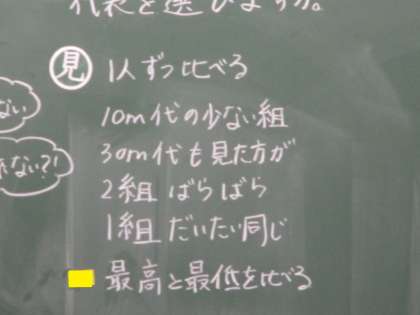 代表を選びますか。
見 1人ずつ比べる
ない
10m代の少ない組
30m代も見た方が
ない?!
2組 ばらばら
1組 だいたい同じ
最高と最低を比べる